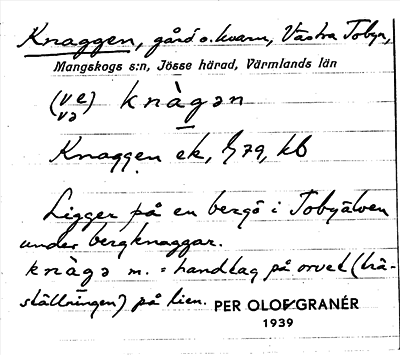 Knaggen, gård o. kvarn, Västra Tobyn,
Mangskogs s:n, Jösse härad, Värmlands län
(ve va) knàgən
Knaggen ek, G79, kb
Ligger på en bergö i Tobyälven
under bergknaggar.
knàgə m. = handtag på orvet (trä-
ställningen) på lien.
PER OLOF GRANÉR
1939